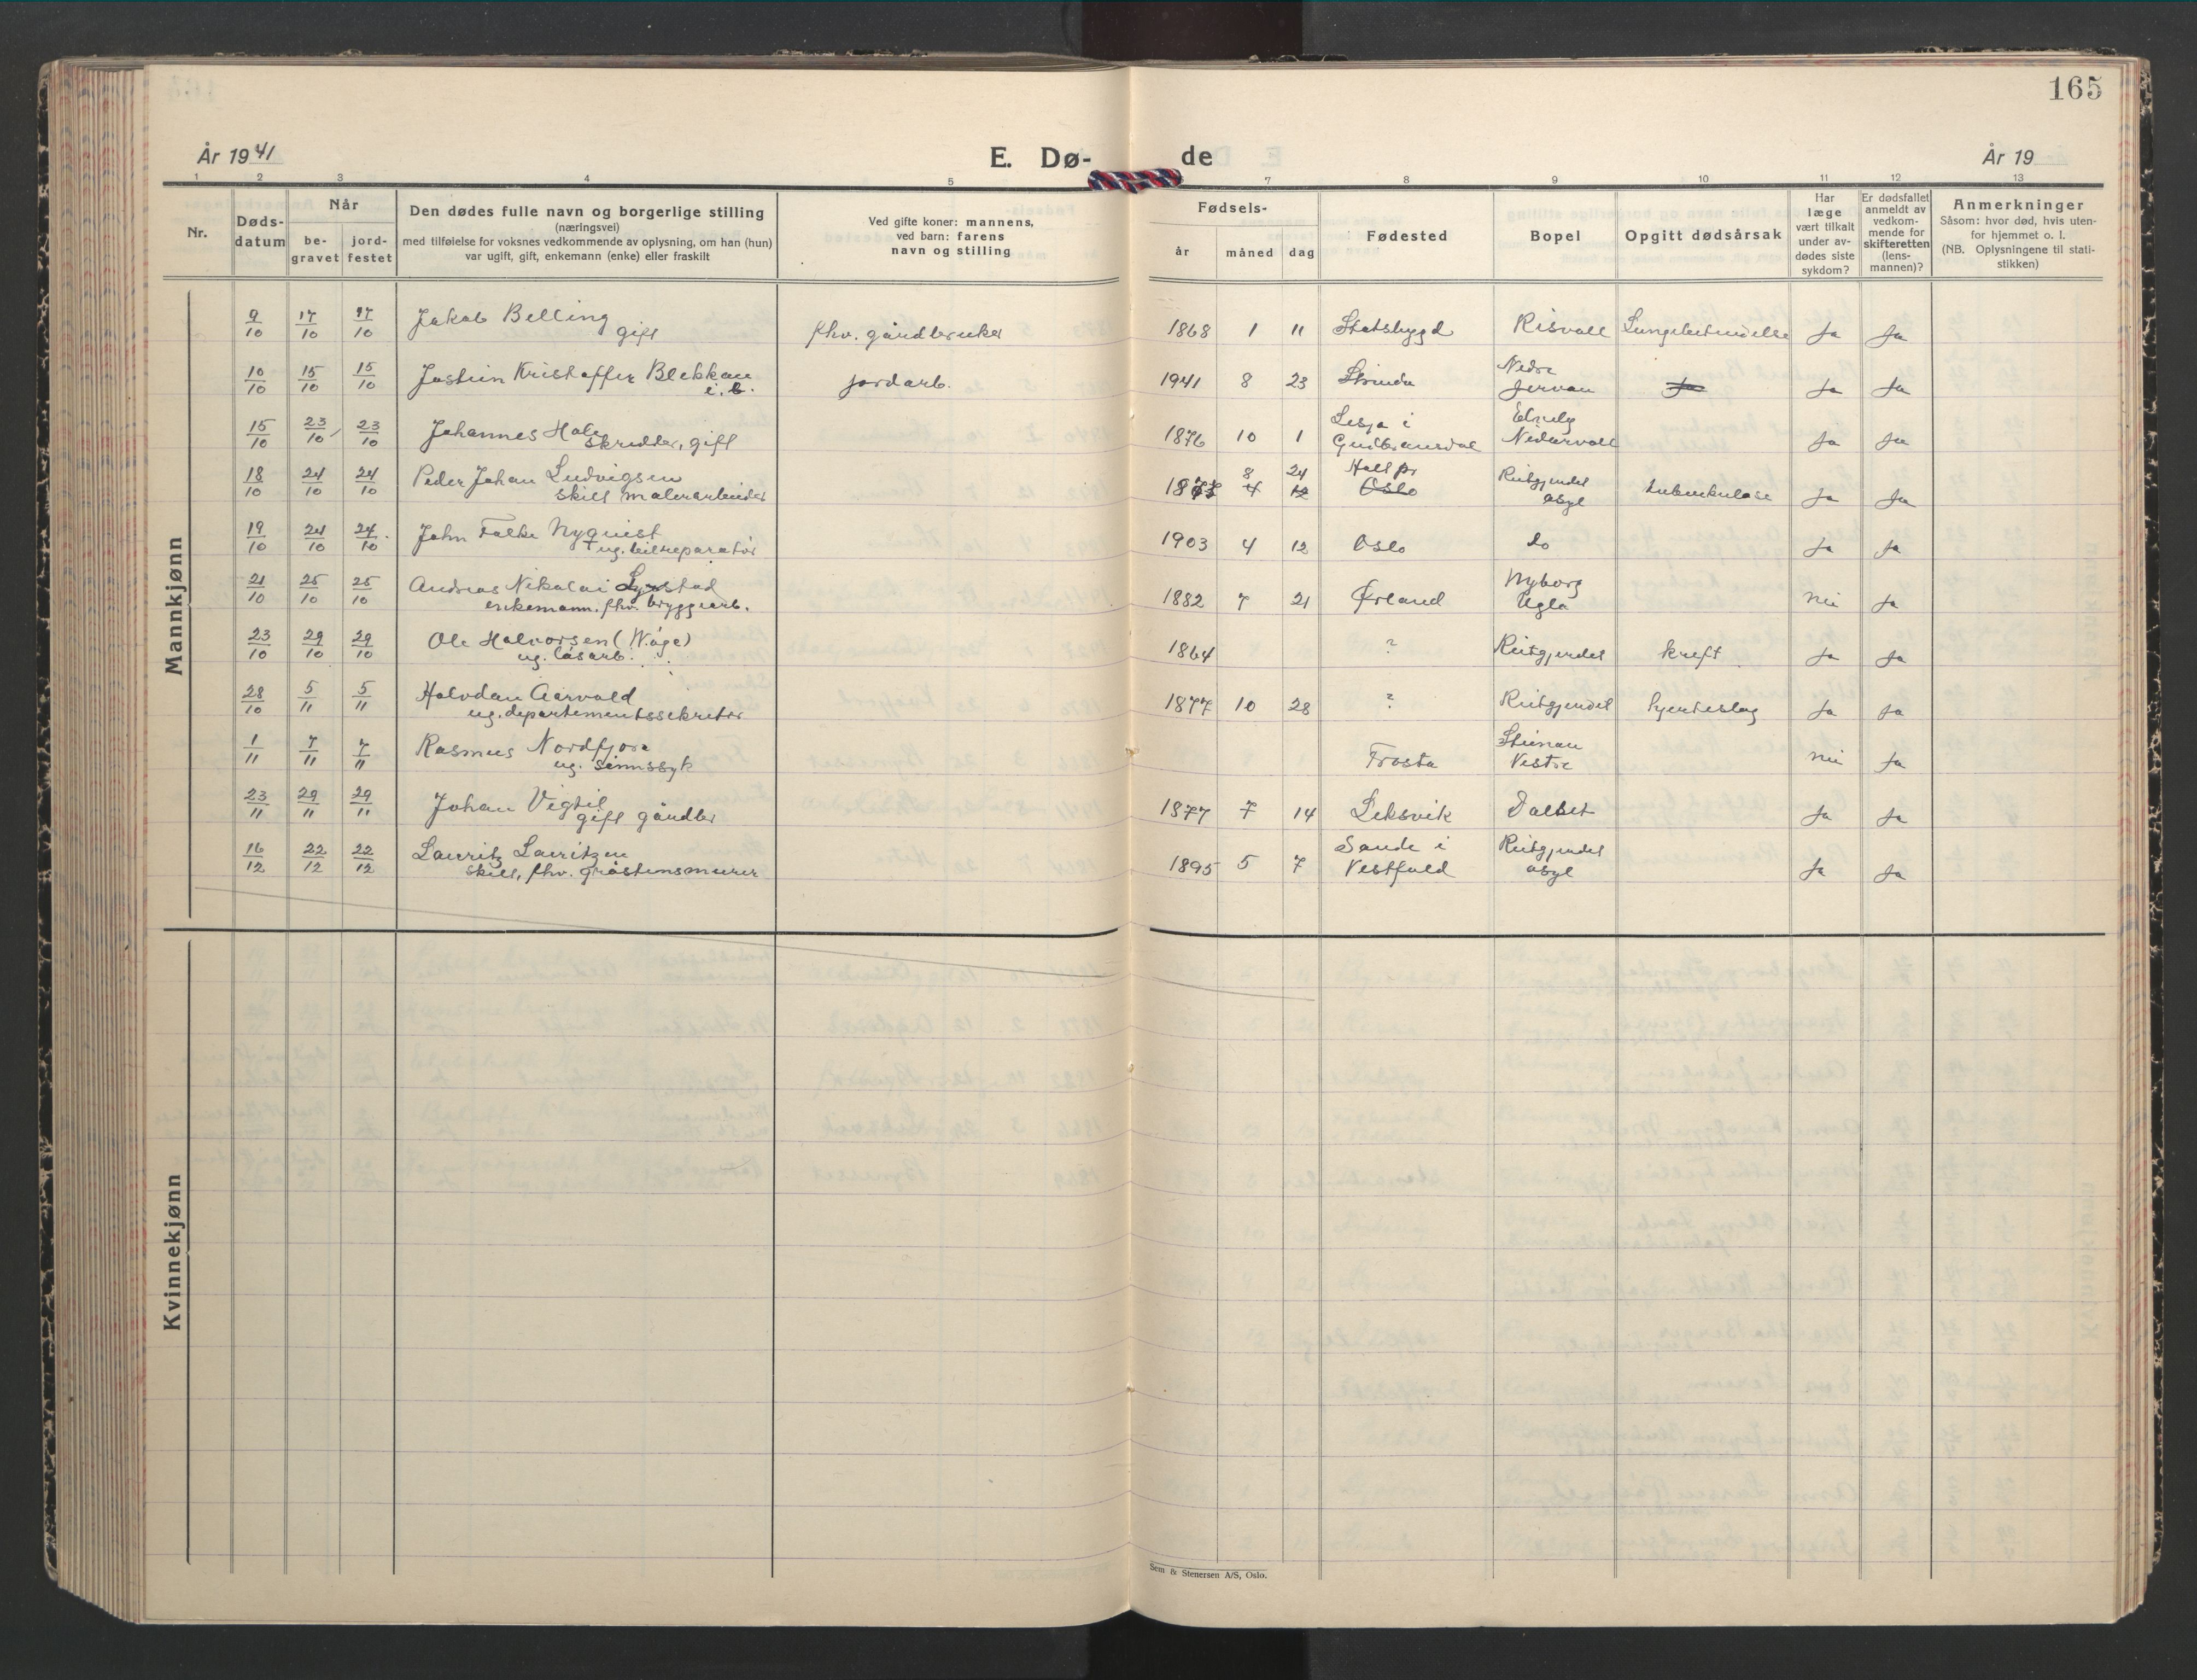 165
År 1941
E. Dø-
de
År 19
1 2 3 4 5 7 8 9 10 11 12 13
Nr.
Døds-
datum
Når
be-
gravet
jord-
festet
Den dødes fulle navn og borgerlige stilling
(næringsvei)
med tilføielse for voksnes vedkommende av oplysning, om han (hun)
var ugift, gift, enkemann (enke) eller fraskilt
Ved gifte koner: mannens,
ved barn: farens
navn og stilling
Fødsels-
år
måned
dag
Fødested
Bopel
Opgitt dødsårsak
Har
læge
vært tilkalt
under av-
dødes siste
sykdom?
Er dødsfallet
anmeldt av
vedkom-
mende for
skifteretten
(lens-
mannen)?
Anmerkninger
Såsom: hvor død, hvis uten-
for hjemmet o. l.
(NB. Oplysningene til stati-
stikken)
Mannkjønn
9/10 17/10 17/10 Jakob Belling
gift
fhv. gårdbruker 1868 1 11 Stadsbygd Risvoll Lungebetendelse Ja Ja
10/10 15/10 15/10 Jostein Kristoffer Blekkan
i.b.
jordarb. 1941 8 23 Strinda Nedre
Jervan Ja Ja Ja
15/10 23/10 23/10 Johannes Hole
skredder, gift
1876 10 1 Lesja i
Gudbransdal
Nidarvoll Ja Ja
18/10 24/10 24/10 Peder Johan Ludvigsen
skilt malerarbeider
8 24
4 12 Oslo
Reitgjerdet
asyl tuberkulose Ja Ja
19/10 24/10 24/10 John Falke Nyquist
ug. bilreparatør
1903 4 12 Oslo do Ja Ja
21/10 25/10 25/10 Andreas Nikolai
enkemann. fhv. bryggearb.
1882 7 21 Ørland Nyborg
Ugla Nei Ja
23/10 29/10 29/10 Ole Halvorsen (Wåge)
ug. løsarb.
1864 ? Reitgjerdet kreft Ja Ja
28/10 5/11 5/11 Halvdan Aarvold
ug. departementssekretær
1877 10 28 ? Reitgjerdet hjerteslag Ja Ja
1/11 7/11 7/11 Rasmus Nordfjore
ug. sinnssyk
Frosta Steinan
Vestre Nei Ja
23/11 29/11 29/11 Johan Vigtil
gift gårdbr
1877 7 14 Leksvik Dalset Ja Ja
16/12 22/12 22/12 Lauritz Lauritzen
skilt, fhv. gråstensmurer
1895 5 7 Sande i
Vestfold Reitgjerdet
asyl Ja Ja
Kvinnekjønn
Sem & Stenersen A/S, Oslo.